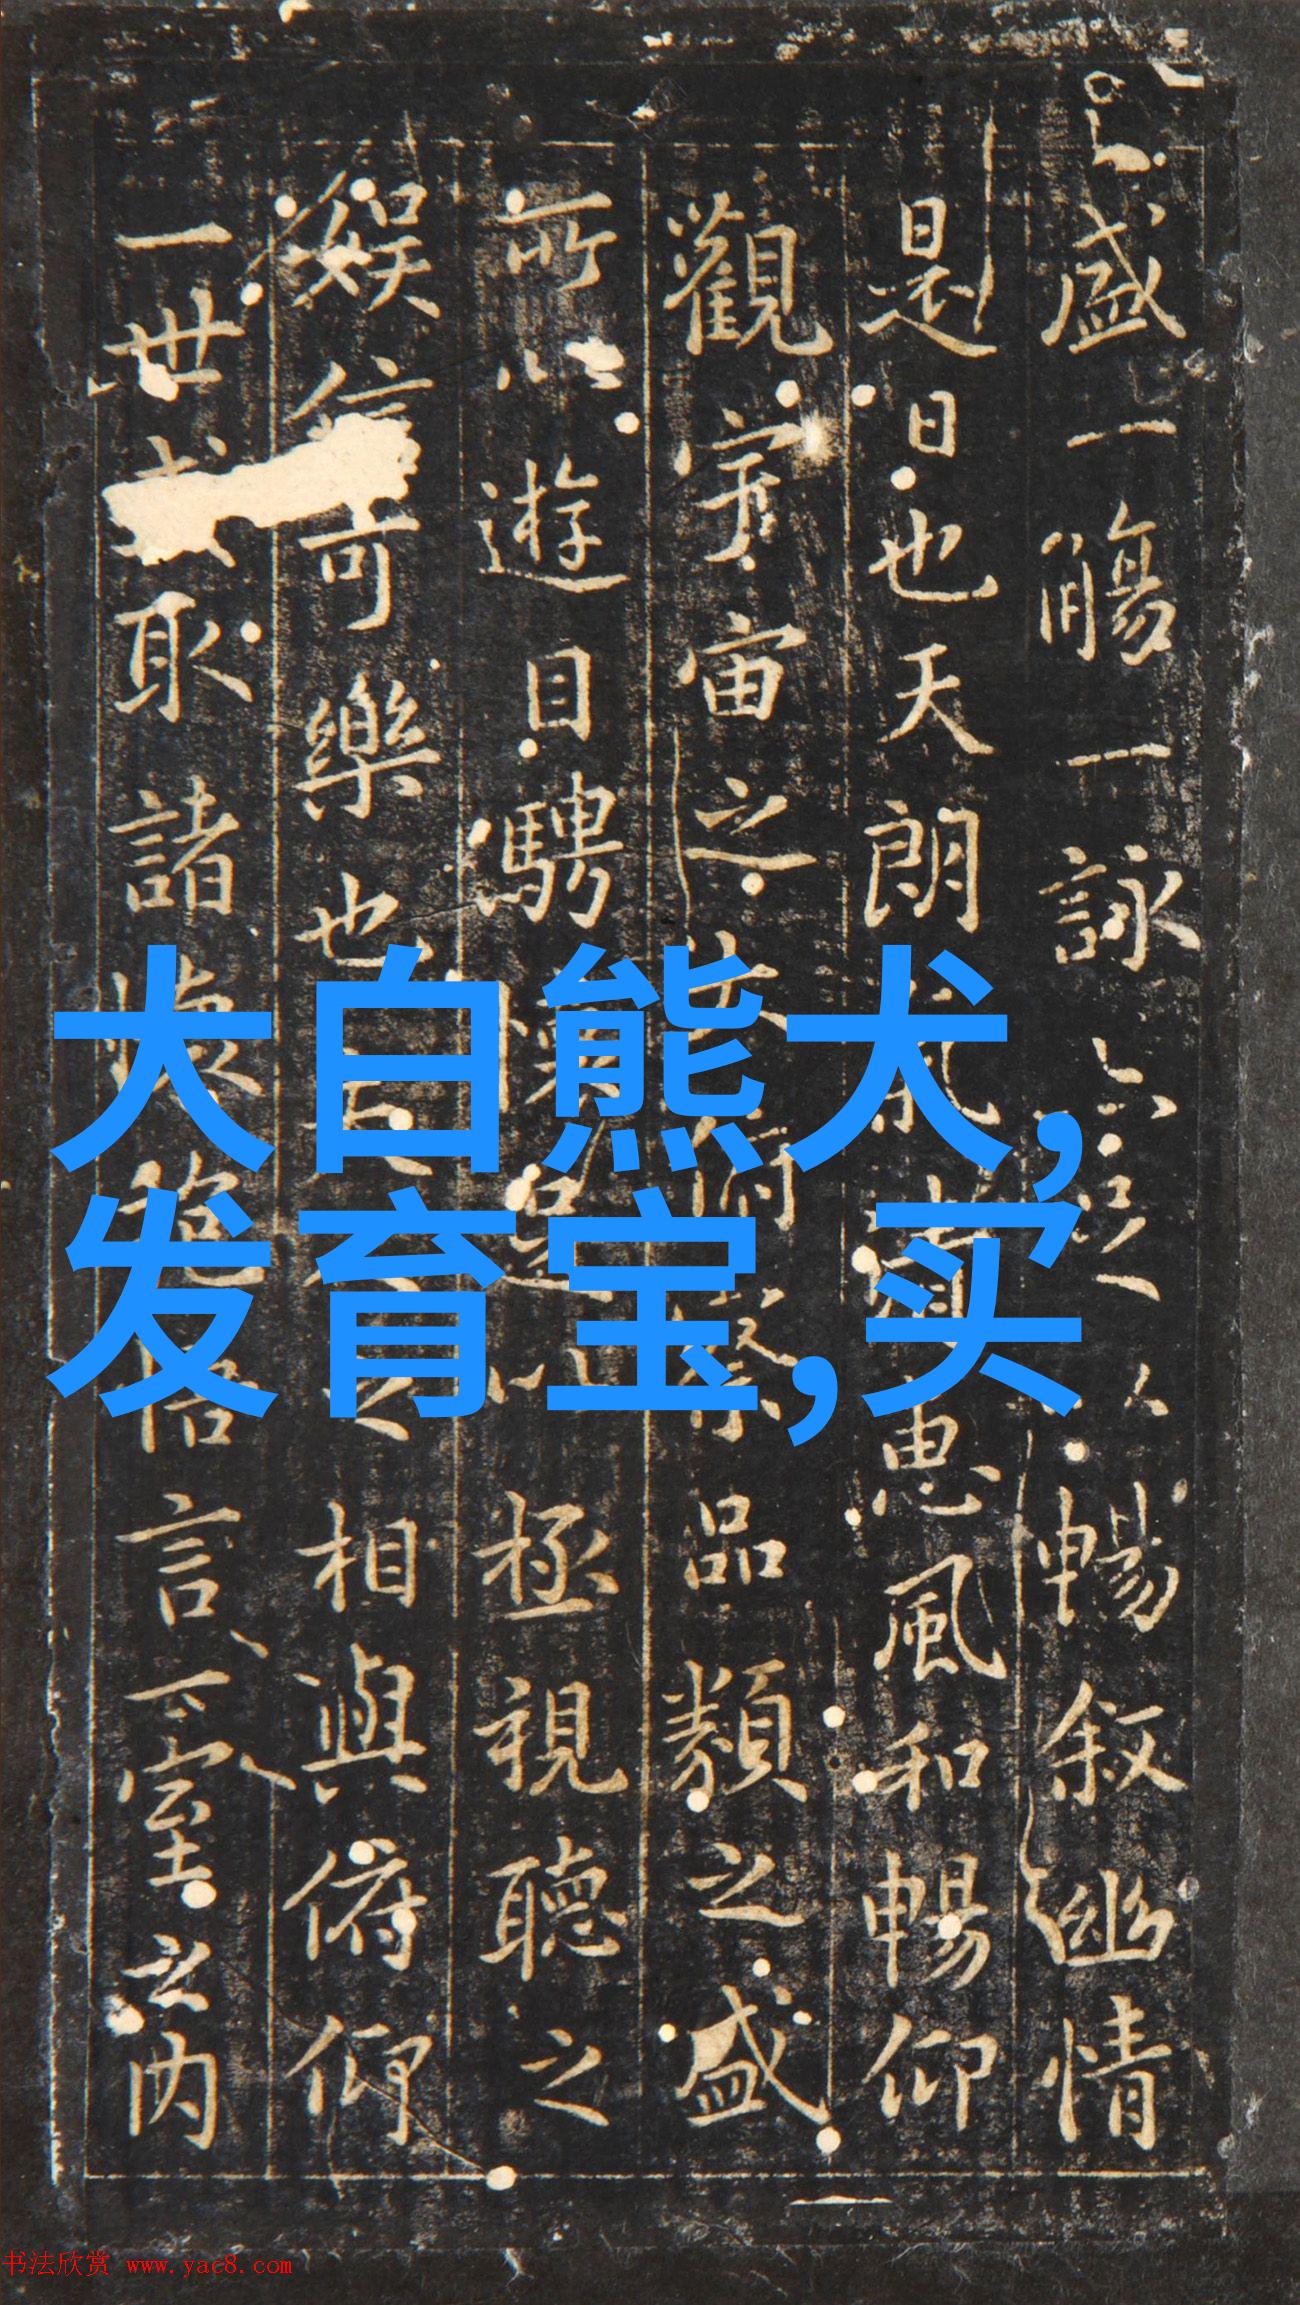 盛一觴一詠亦足以暢叙幽情
是日也天朗氣清惠風和暢仰
觀宇宙之大俯察品類之盛
所以遊目騁懷足以極視聽之
娱信可樂也夫人之相與俯仰
一世或取諸懷抱悟言一室之内
大白熊犬,
发育宝,买
书法欣赏 www.yac8.com